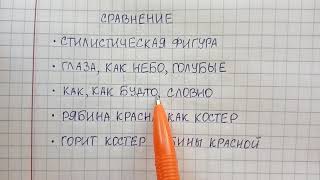 СРАВНЕНИЕ
• СТИЛИСТИЧЕСКАЯ ФИГУРА
• ГЛАЗА, КАК НЕБО, ГОЛУБЫЕ
• КАК, КАК БУДТО, СЛОВНО
• РЯБИНА КРАСНА КАК КОСТЕР
• ГОРИТ КОСТЕР РЯБИНЫ КРАСНОЙ